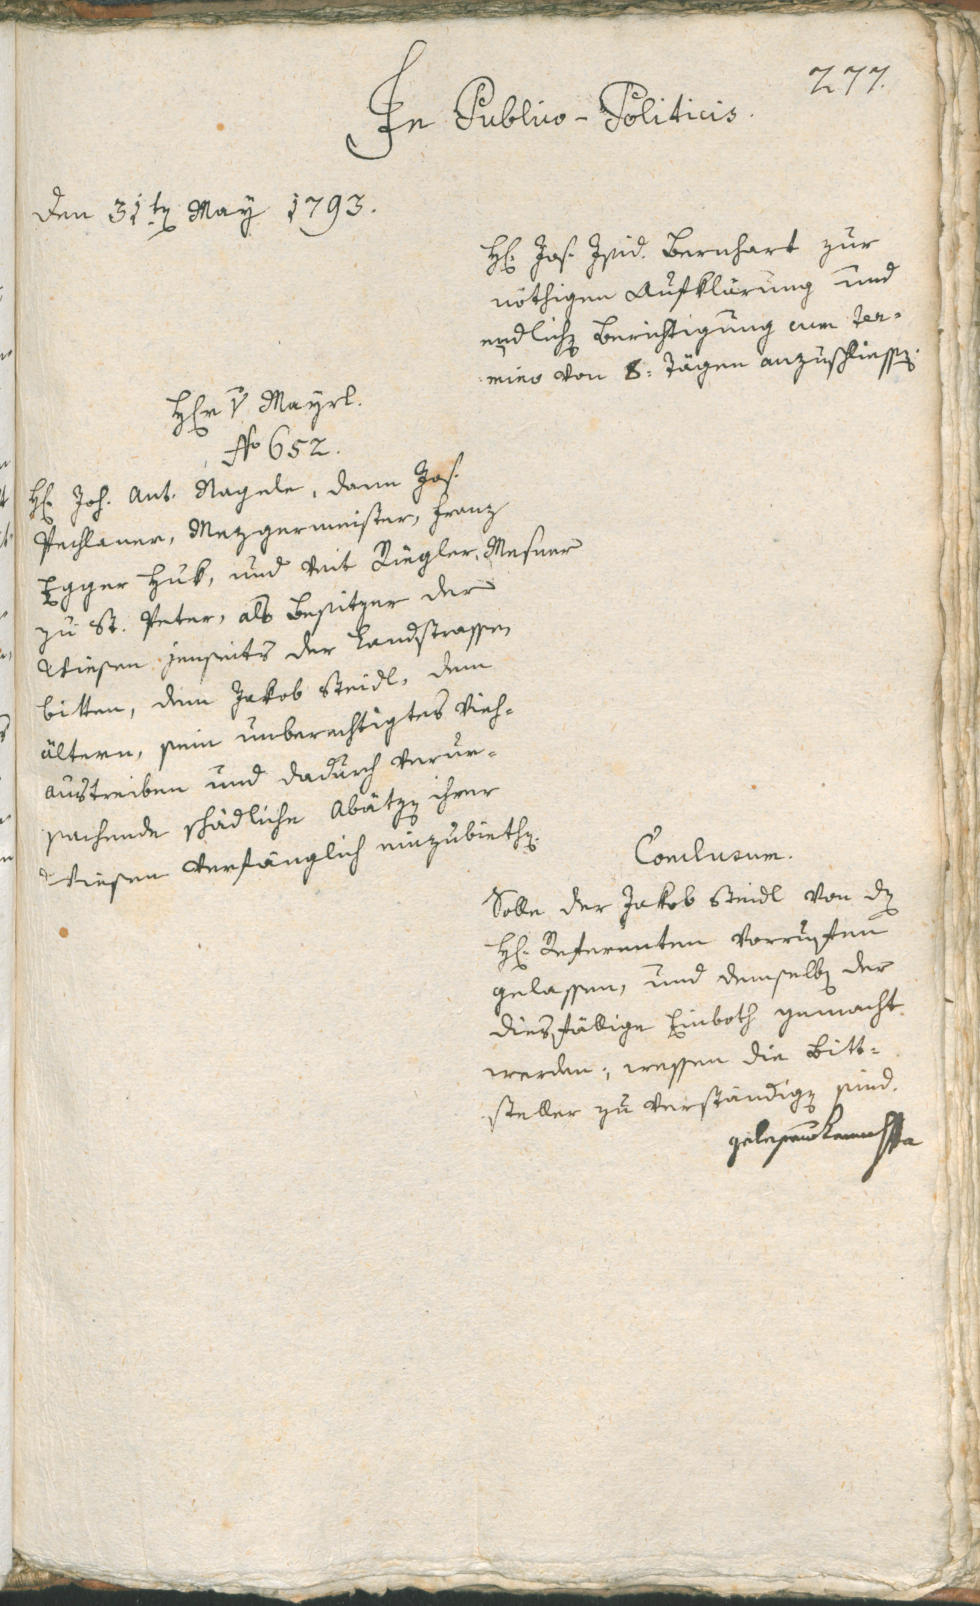 277.
In Publico-Politicis.
den 31ten May 1793.
H: Jos. Isid. Bernhart zur
nöthigen Aufklärung und
endlichen Berichtigung cum ter-
mino von 8: Tägen anzuschliessen.
Herr v Mayrl.
No 652.
H: Joh. Ant. Nagele, dann Jos.
Pechlaner, Mezgermeister, Franz
Egger Huk, und Veit Riegler, Mesner
zu St. Peter, als Besitzer der
Wiesen jenseits der Landstrassen
bitten, dem Jakob Steidl, dem
ältern, sein unberechtigtes Vieh-
austreiben und dadurch verur-
sachende schädliche Abätzen ihrer
Wiesen verfänglich einzubiethen.
Conclusum.
Solle der Jakob Steidl von den
H: Referenten vorruffen
gelassen, und demselben der
diesfällige Einboth gemacht
werden; wessen die Bitt-
steller zu verständigen sind.